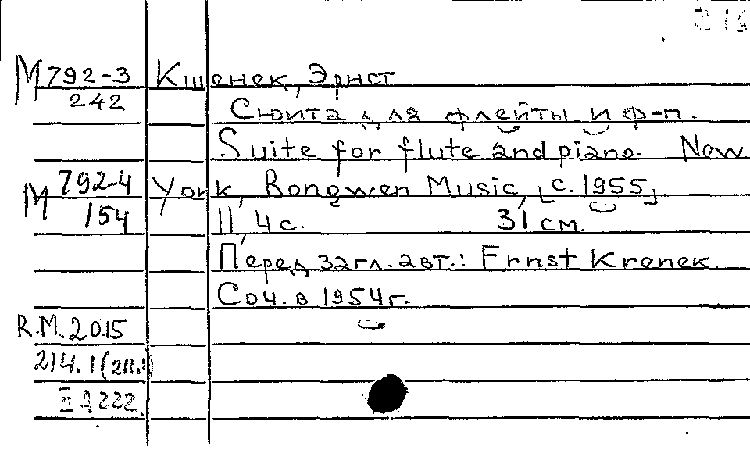 M 792-3 Кшенек, Эрнст
242
Сюита для флейты и ф-п.
Suite for flute and piano. New
M 792-4 York, Rongwen Music, [c. 1955]
154
11, 4 с. 31 см.
Перед загл. авт.: Ernst Krenek
Соч. в 1954 г.
R.M. 2015
214.1